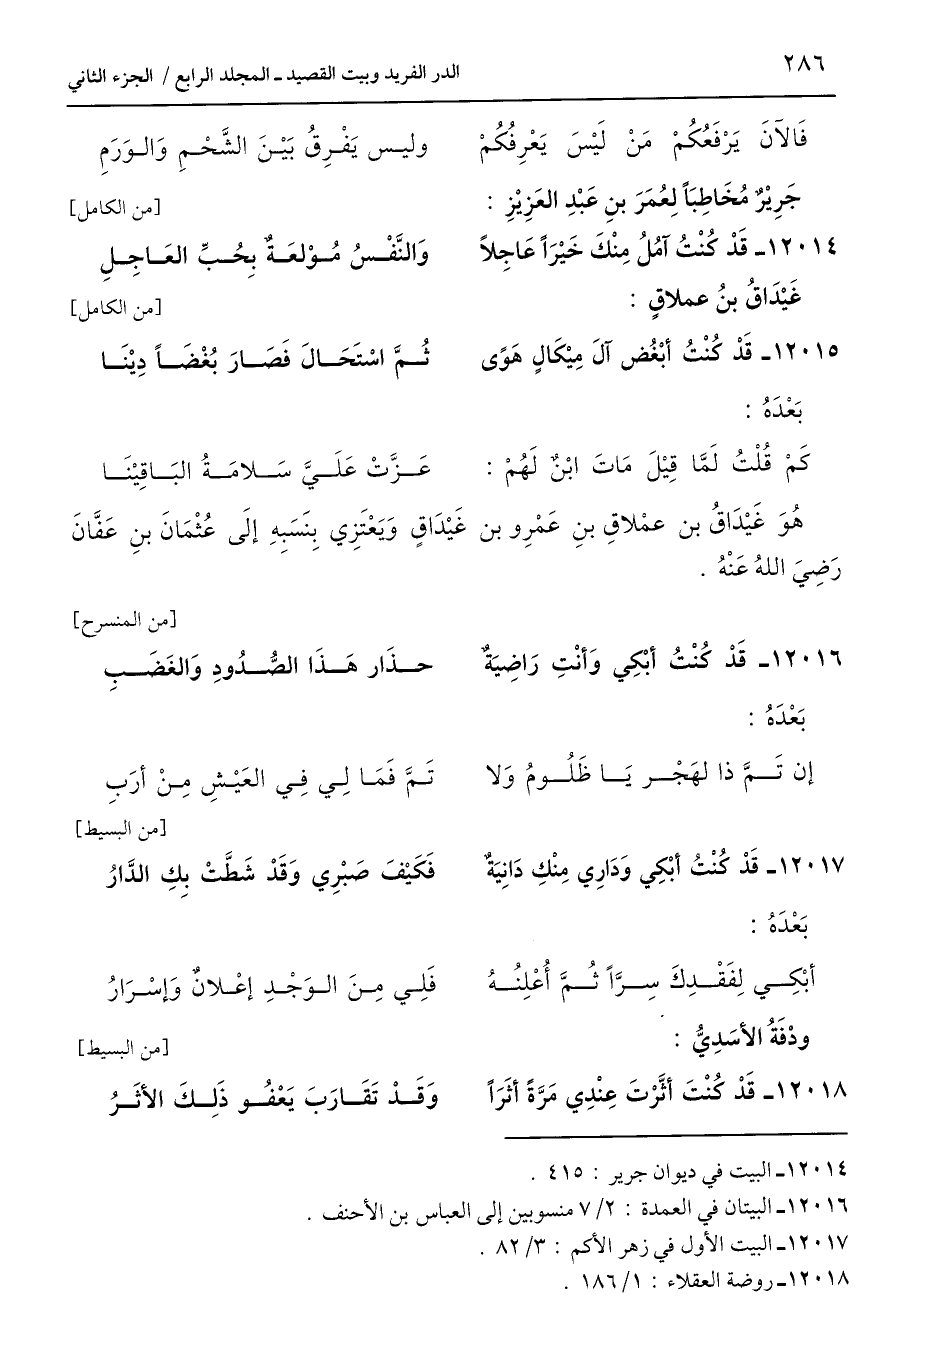 ٢٨٦
الدر الفريد وبيت القصيد ـ المجلد الرابع / الجزء الثاني
فَالآنَ يَرْفَعُكُمْ مَنْ لَيْسَ يَعْرِفُكُمْ وليس يَفْرِقُ بَيْنَ الشَّحْمِ وَالوَرَمِ
جَرِيْرٌ مُخَاطِبَاً لِعُمَرَ بنِ عَبْدِ العَزِيْزِ : [من الكامل]
١٢٠١٤ـ قَدْ كُنْتُ آمُلُ مِنْكَ خَيْرَاً عَاجِلاً وَالنَّفْسُ مُوْلَعَةٌ بِحُبِّ العَاجِلِ
غَيْدَاقُ بنُ عملاقٍ : [من الكامل]
١٢٠١٥ـ قَدْ كُنْتُ أبْغُض آلَ مِيْكَالٍ هَوًى ثُمَّ اسْتَحَالَ فَصَارَ بُغْضَاً دِيْنَا
بَعْدَهُ :
كَمْ قُلْتُ لَمَّا قِيْلَ مَاتَ ابْنٌ لَهُمْ : عَزَّتْ عَلَيَّ سَلامَةُ البَاقِيْنَا
هُوَ غَيْدَاقُ بن عمْلاقِ بنِ عَمْرِو بن غَيْدَاقٍ وَيَعْتَزِي بِنَسَبِهِ إلَى عُثْمَانَ بنِ عَفَّانَ
رَضِيَ اللهُ عَنْهُ .
[من المنسرح]
١٢٠١٦ـ قَدْ كُنْتُ أبْكِي وَأنْتِ رَاضِيَةٌ حذَار هَذَا الصُّدُودِ وَالغَضَبِ
بَعْدَهُ :
إن تَمَّ ذا لهَجْر يَا ظَلُومُ وَلا تَمَّ فَمَا لِي فِي العَيْشِ مِنْ أرَبِ
[من البسيط]
١٢٠١٧ـ قَدْ كُنْتُ أبْكِي وَدَارِي مِنْكِ دَانِيَةٌ فَكَيْفَ صَبْرِي وَقَدْ شَطَّتْ بِكِ الدَّارُ
بَعْدَهُ :
أبْكِي لِفَقْدِكَ سِرَّاً ثُمَّ أُعْلِنُهُ فَلِي مِنَ الوَجْدِ إعْلانٌ وَإسْرَارُ
ودْفَةُ الأسَدِيُّ : [من البسيط]
١٢٠١٨ـ قَدْ كُنْتَ أثَّرْتَ عِنْدِي مَرَّةً أثَرَاً وَقَدْ تَقَارَبَ يَعْفُو ذَلِكَ الأثَرُ
١٢٠١٤ـ البيت في ديوان جرير : ٤١٥ .
١٢٠١٦ـ البيتان في العمدة : ٢/ ٧ منسوبين إلى العباس بن الأحنف .
١٢٠١٧ـ البيت الأول في زهر الأكم : ٣/ ٨٢ .
١٢٠١٨ـ روضة العقلاء : ١/ ١٨٦ .